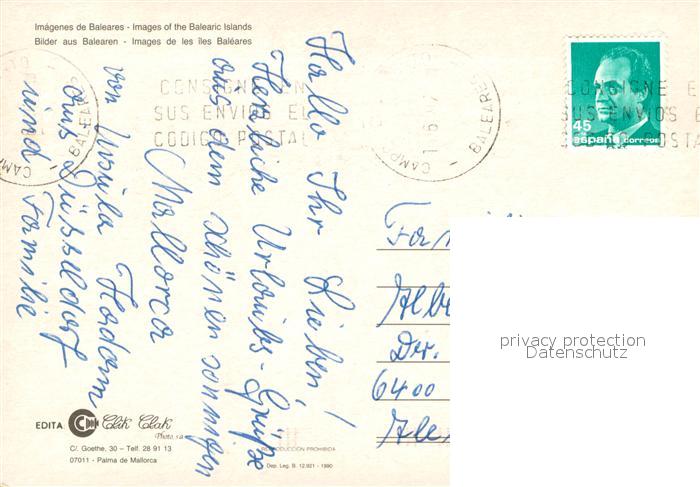 Imágenes de Baleares - Images of the Balearic Islands
Bilder aus Balearen - Images de les îles Baléares
CONSIGNE EN
SUS ENVIOS EL
CODIGO POSTAL
BALEARES
CAMP
BALEARES
CAMP
CONSIGNE E
SUS ENVIOS E
POSTA
45
españa correos
Hallo Ihr Lieben!
Herzliche Urlaubs-Grüße
aus dem schönen sonnigen
Mallorca
von Ursula
aus Düsseldorf
und Familie
Fa
Albe
Der.
6400
Ale
privacy protection
Datenschutz
EDITA
Clik Clak
Photo, s.a.
C/. Goethe, 30 – Telf. 28 91 13
07011 - Palma de Mallorca
PRODUCCION PROHIBIDA
Dep. Leg. B. 12.921 - 1990